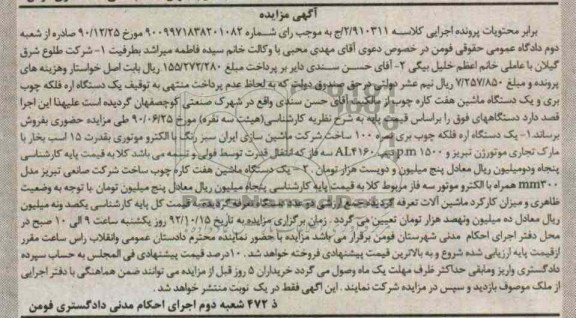 آگهی مزایده
برابر محتویات پرونده اجرایی کلاسه ۲/۹۱۰۳۱۱/ج به موجب رای شماره ۹۰۰۹۹۷۱۸۳۸۲۰۱۰۸۲ مورخ ۹۰/۱۲/۲۵ صادره از شعبه
دوم دادگاه عمومی حقوقی فومن در خصوص دعوی آقای مهدی محبی با وکالت خانم سیده فاطمه میراشد بطرفیت ۱- شرکت طلوع شرق
گیلان با عاملی خانم اعظم خلیل بیگی ۲- آقای حسن سندی دایر بر پرداخت مبلغ ۱۵۵/۲۷۲/۲۸۰ ریال بابت اصل خواستار وهزینه های
پرونده و مبلغ ۷/۲۵۷/۸۵۰ ریال نیم عشر دولتی در حق صندوق دولت که به لحاظ عدم پرداخت منتهی به توقیف یک دستگاه اره فلکه چوب
بری و یک دستگاه ماشین هفت کاره چوب از مالکیت آقای حسن سندی واقع در شهرک صنعتی کوچصفهان گردیده است علیهذا این اجرا
قصد دارد دستگاههای فوق را براساس قیمت پایه به شرح نظریه کارشناسی (هیئت سه نفره) مورخ ۹۰/۰۶/۲۵ طی مزایده حضوری بفروش
برساند ۱- یک دستگاه اره فلکه چوب بری نمره ۱۰۰ ساخت شرکت ماشین سازی ایران سبز رنگ با الکترو موتوری بقدرت ۱۵ اسب بخار با
مارک تجاری موتورژن تبریز و ۱۵۰۰ p.m تیپ AL۴۱۶۰ سه فاز که انتقال قدرت توسط فولی و تسمه می باشد کلا به قیمت پایه کارشناسی
پنجاه ودومیلیون ریال معادل پنج میلیون و دویست هزار تومان . ۲- یک دستگاه ماشین هفت کاره چوب ساخت شرکت صانعی تبریز مدل
۳۰۰mm همراه با الکترو موتور سه فاز مربوط کلا به قیمت پایه کارشناسی پنجاه میلیون ریال معادل پنج میلیون تومان با توجه به وضعیت
ظاهری و میزان کارکرد ماشین آلات تعرفه قیمت کل پایه کارشناسی یکصد ونه میلیون
ریال معادل ده میلیون ونهصد هزار تومان تعیین می گردد . زمان برگزاری مزایده به تاریخ ۹۲/۱۰/۱۵ روز یکشنبه ساعت ۹ الی ۱۰ صبح در
محل دفتر اجرای احکام مدنی شهرستان فومن برقرار می باشد مزایده با حضور نماینده محترم دادستان عمومی وانقلاب راس ساعت مقرر
ازقیمت پایه ارزیابی شده شروع و به بالاترین قیمت پیشنهادی فروخته خواهد شد . ۱۰ درصد قیمت پیشنهادی فی المجلس به حساب سپرده
دادگستری واریز ومابقی حداکثر ظرف مهلت یک ماه وصول می گردد خریداران ۵ روز قبل از مزایده می توانند ضمن هماهنگی با دفتر اجرایی
از ملک موصوف بازدید و سپس در مزایده شرکت نمایند . این آگهی فقط در یک نوبت منتشر خواهد شد .
ذ ۴۷۲ شعبه دوم اجرای احکام مدنی دادگستری فومن